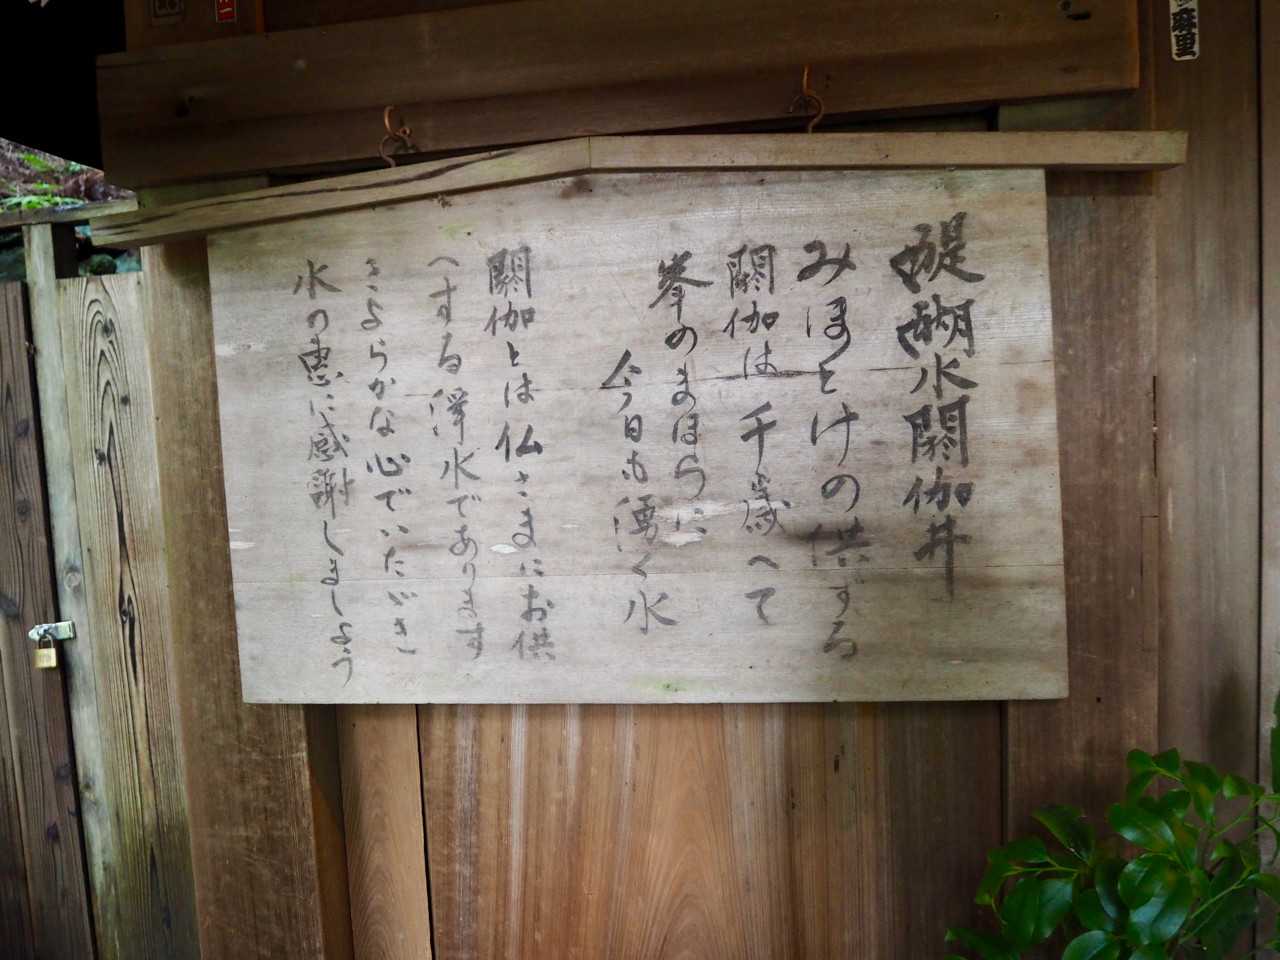 醍醐水閼伽井
みほとけの供ずる
閼伽は千歳へて
峯のまほらに
今日も湧く水
閼伽とは仏さまにお供
へする浄水であります
きよらかな心でいただき
水の恵に感謝しましょう
麻里